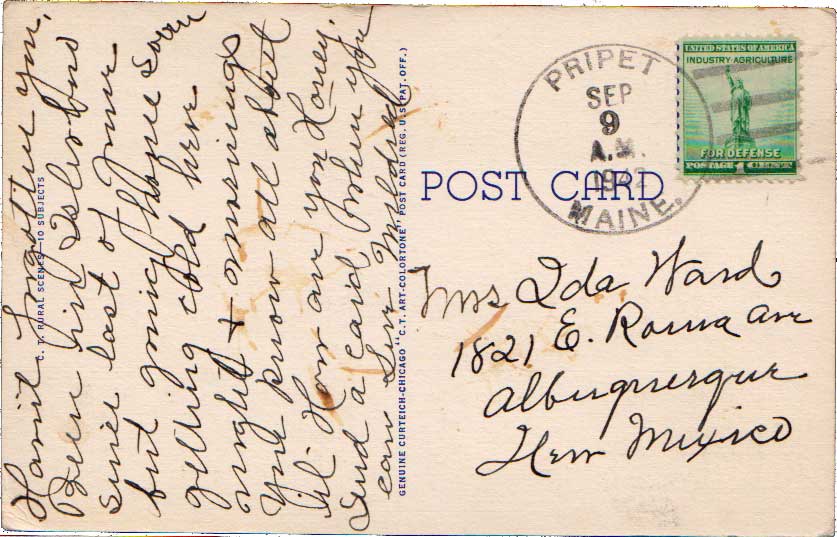 Havn't Forgotten you,
Been in Islesboro
since last of June
but going home soon
getting cold here
nights & mornings
You know all about
it. How are you Honey.
Send a card when you
can Love Mildred
C. T. RURAL SCENES—10 SUBJECTS
GENUINE CURTEICH-CHICAGO "C. T. ART-COLORTONE" POST CARD (REG. U. S. PAT. OFF.)
POST CARD
PRIPET
SEP
9
A.M.
1942
MAINE.
UNITED STATES OF AMERICA
INDUSTRY AGRICULTURE
FOR DEFENSE
POSTAGE 1 CENT
Mrs Ida Ward
1821 E. Roma ave
Albuquerque
New Mexico